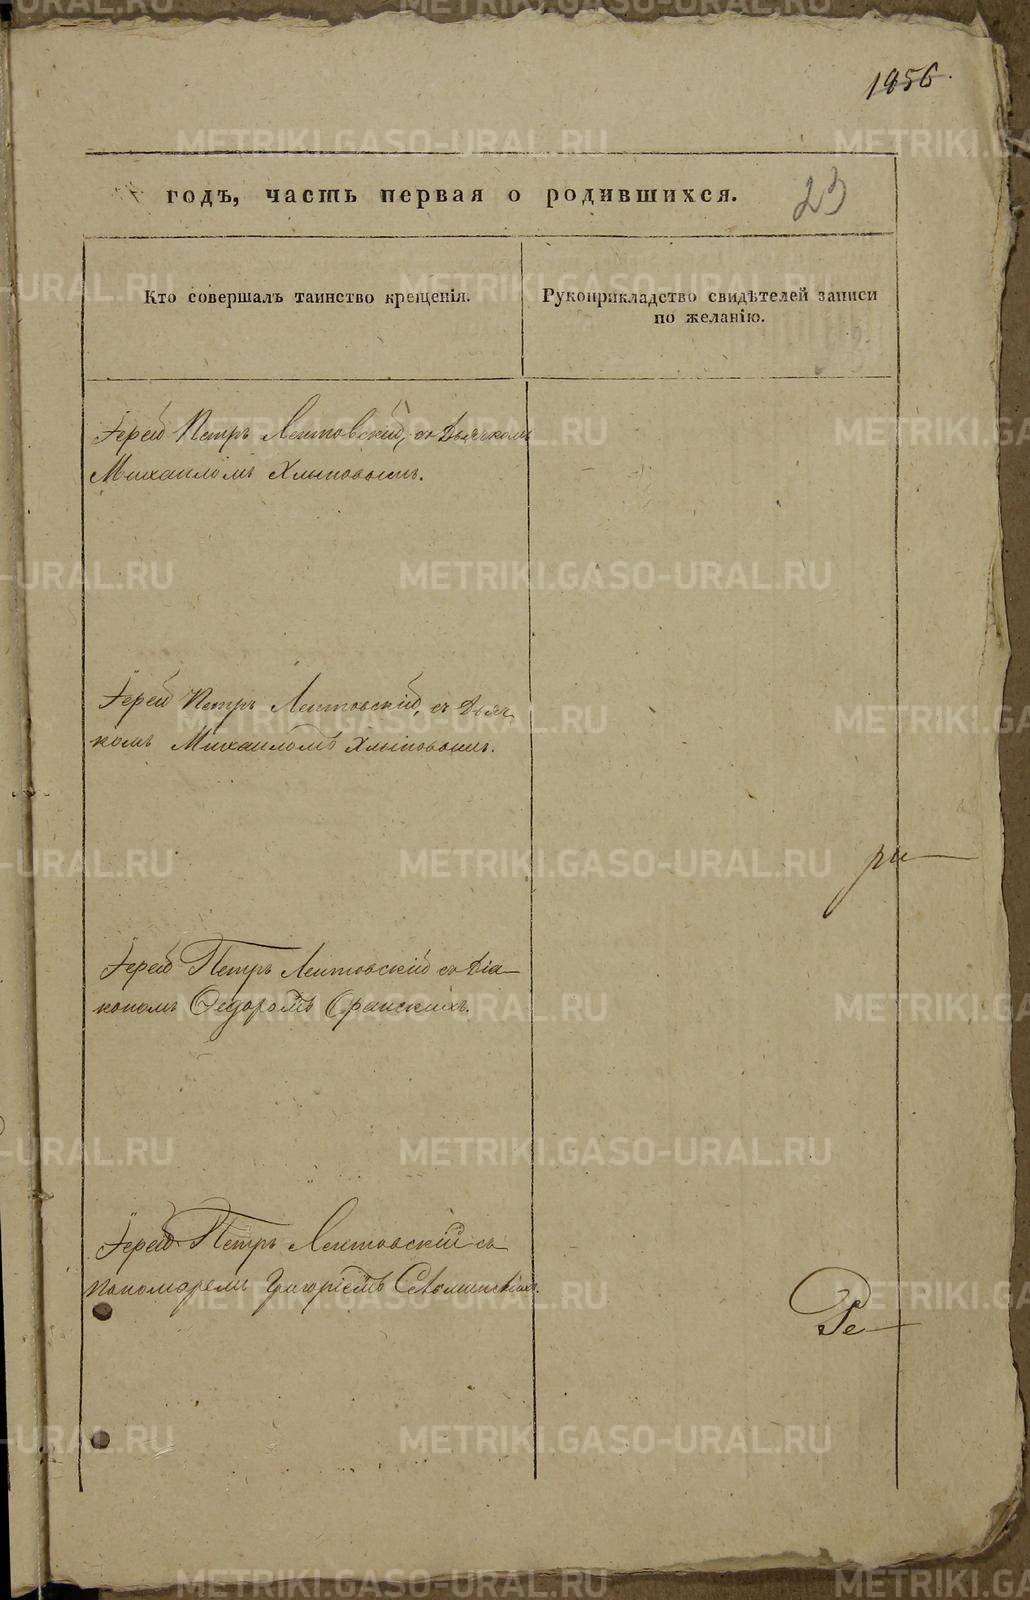 1856.
годъ, часть первая о родившихся.
23
Кто совершалъ таинство крещенія.
Рукоприкладство свидѣтелей записи
по желанію.
Іерей Петръ Лентовскій, съ Дьячкомъ
Михаиломъ Хлыновымъ.
Іерей Петръ Лентовскій, съ Дьяч
комъ Михаиломъ Хлыновымъ.
ри
Іерей Петръ Лентовскій съ Діа
кономъ Ѳедоромъ
Іерей Петръ Лентовскій съ
пономаремъ Григоріемъ
Ре
METRIKI.GASO-URAL.RU